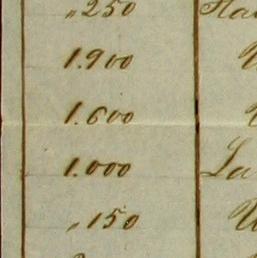 "250
1.900
1.600
1.000 La
"150